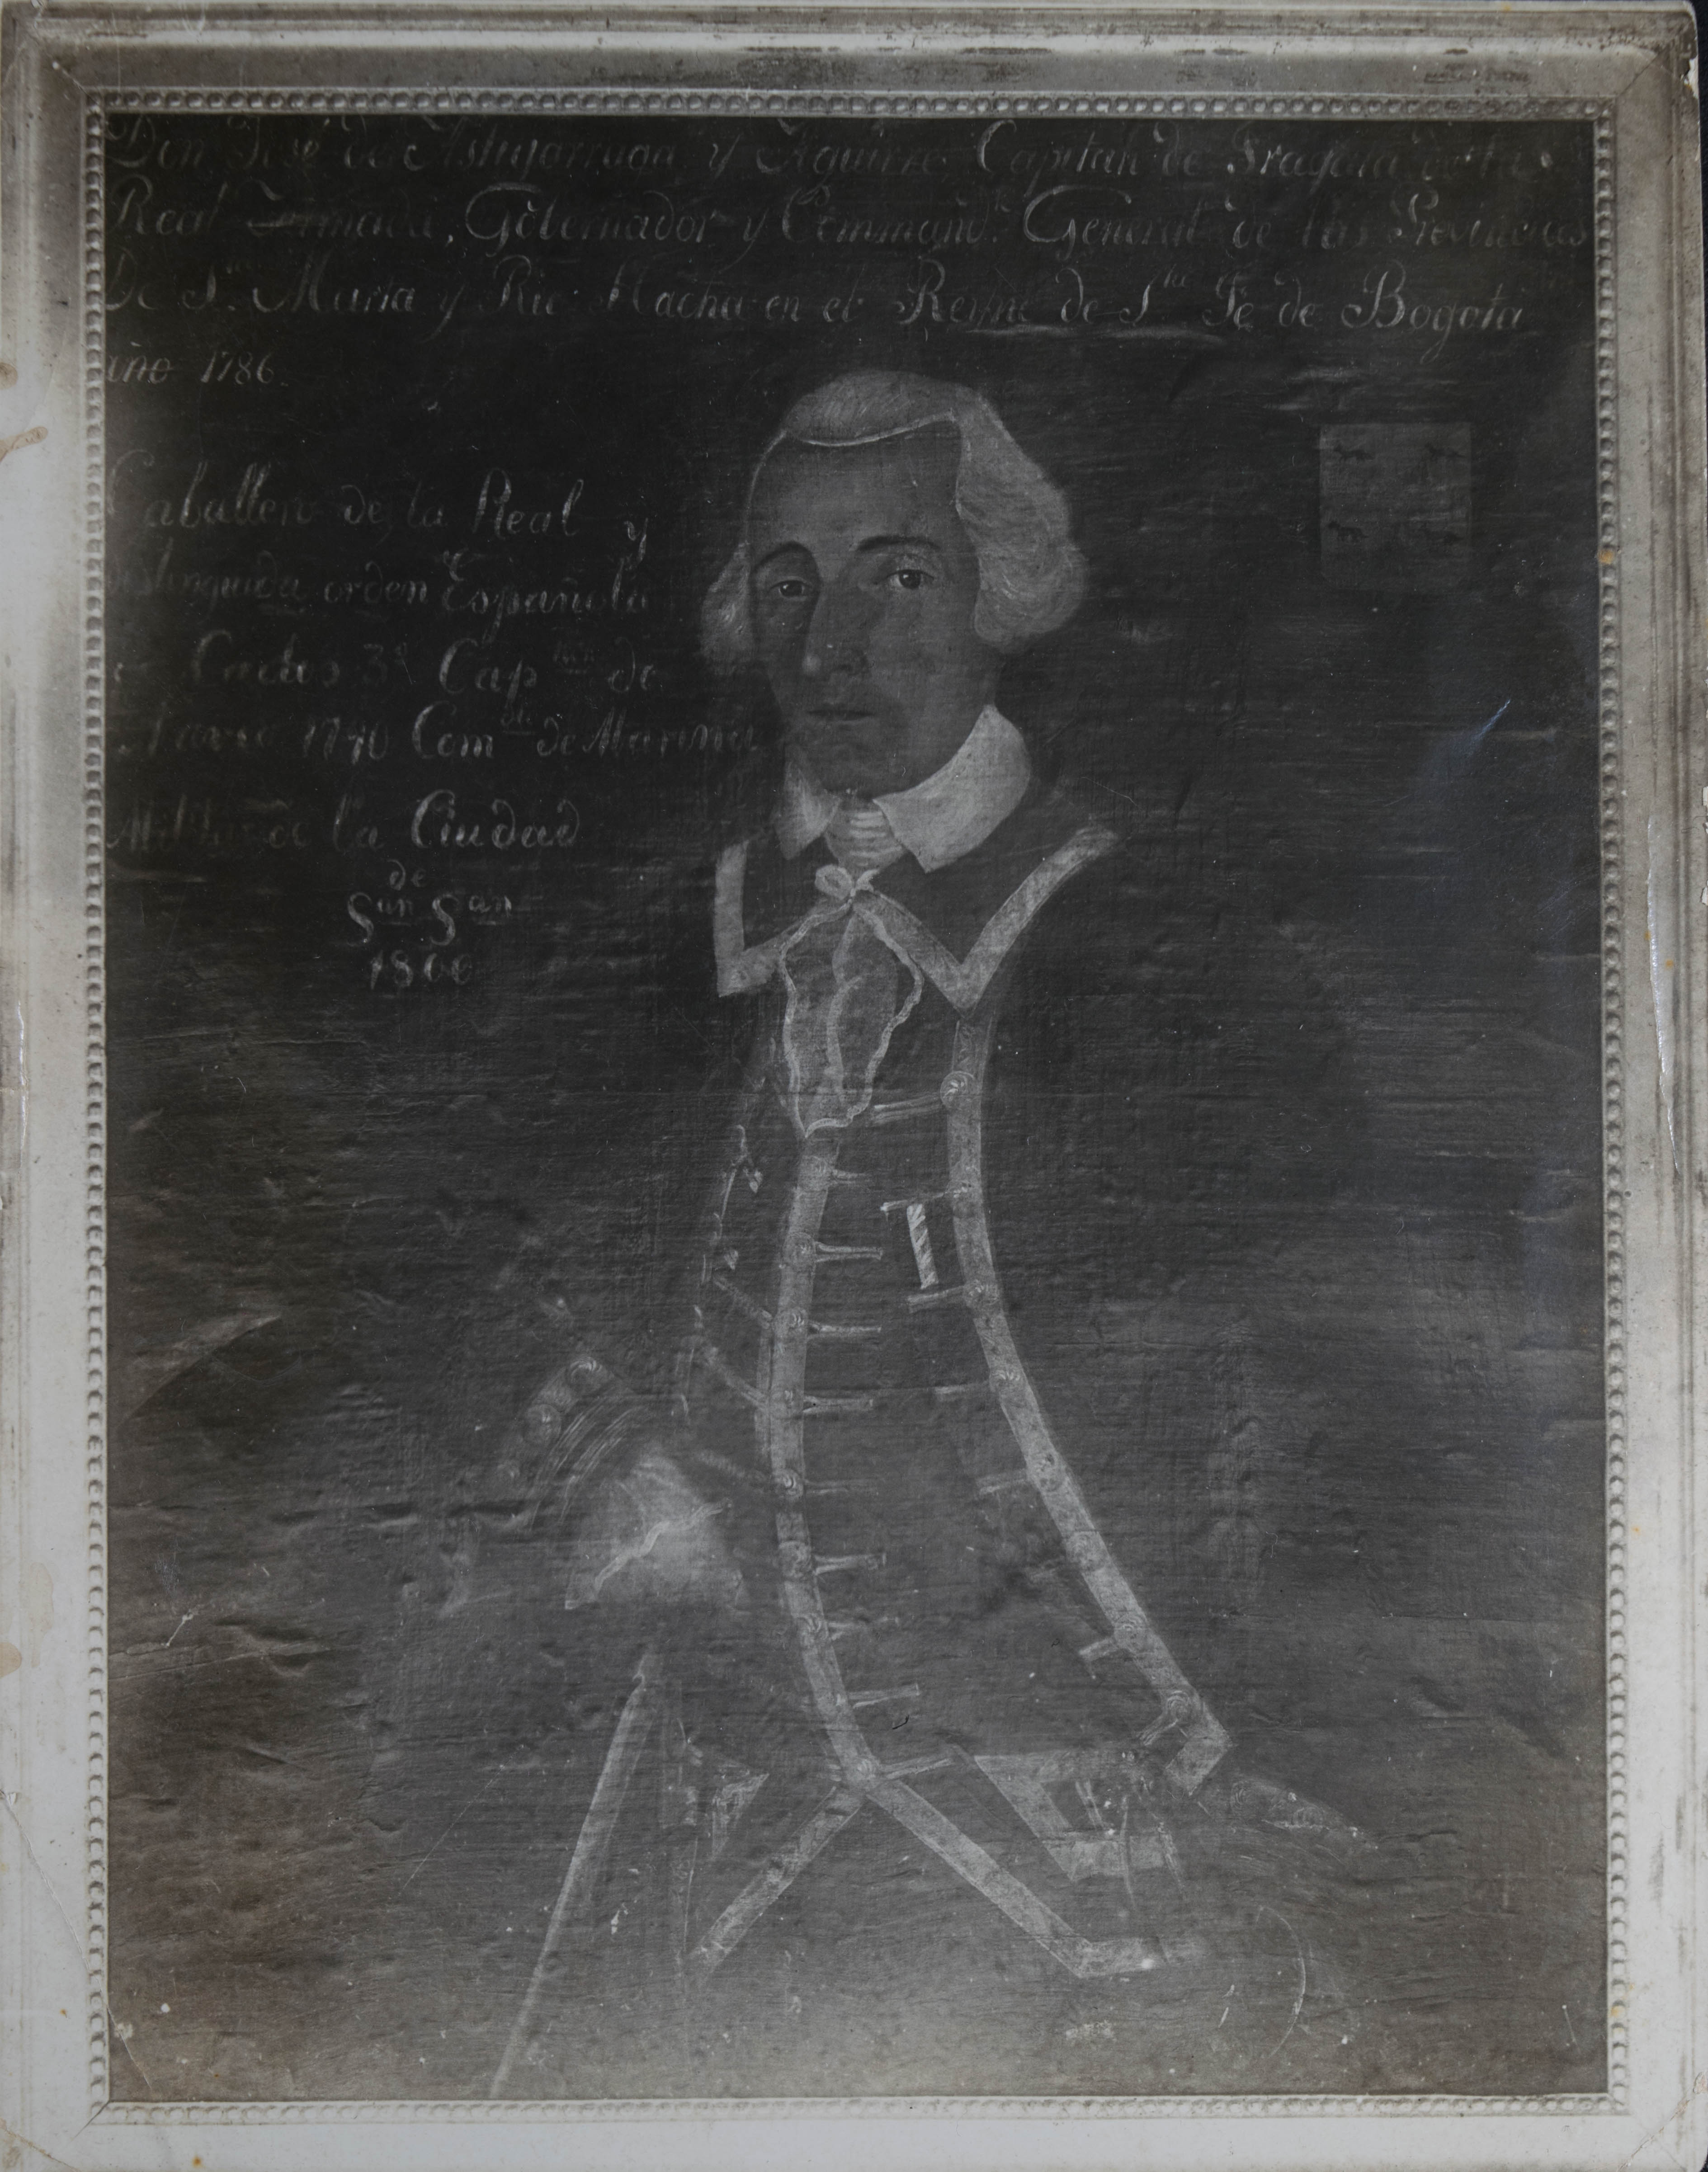 Don José de Astigarraga y Aguirre Capitan de Fragata de la
Real Armada, Gobernador y Command.te General de las Provincias
De S.ta Marta y Rio Hacha en el Reyno de S.ta Fe de Bogota
año 1786
Caballero de la Real y
distinguida orden Española
Carlos 3º Cap.tan de
Navio 1790 Com.te de Marina
Militar de la Ciudad
de
San San
1800